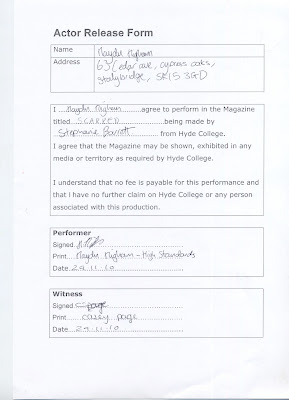 Actor Release Form
Name
Address
63 Cedar ave, cypress oaks,
Stalybridge, SK15 3GD
I agree to perform in the Magazine
titled SCARRED being made by
Stephanie Barrett from Hyde College.
I agree that the Magazine may be shown, exhibited in any
media or territory as required by Hyde College.
I understand that no fee is payable for this performance and
that I have no further claim on Hyde College or any person
associated with this production.
Performer
Signed
Print - High Standards
Date 29.11.10
Witness
Signed C page
Print casey page
Date 29.11.10